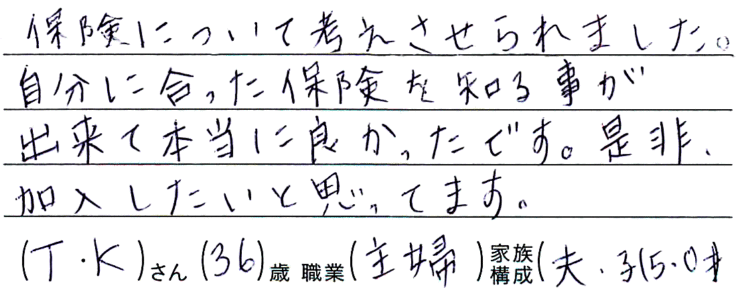 保険について考えさせられました。
自分に合った保険を知る事が
出来て本当に良かったです。是非、
加入したいと思ってます。
(T・K)さん(36)歳 職業(主婦)家族構成(夫・子(5・0才